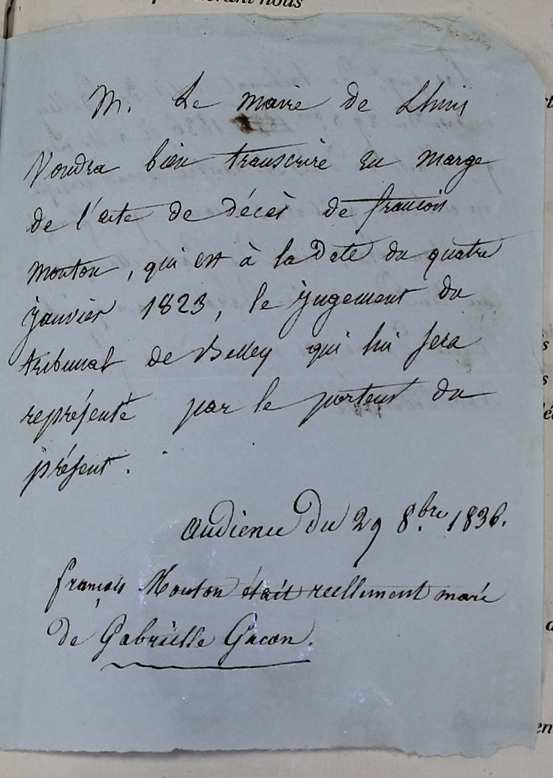 nous
M. Le maire de Lhuis
Voudra bien transcrire en marge
de l'acte de décès de françois
Mouton, qui est à la Date du quatre
janvier 1823, le jugement du
tribunal de Belley qui lui sera
représenté par le porteur du
présent.
audience du 29 8.bre 1836.
françois Mouton était reellement marié
de Gabrielle Gacon.